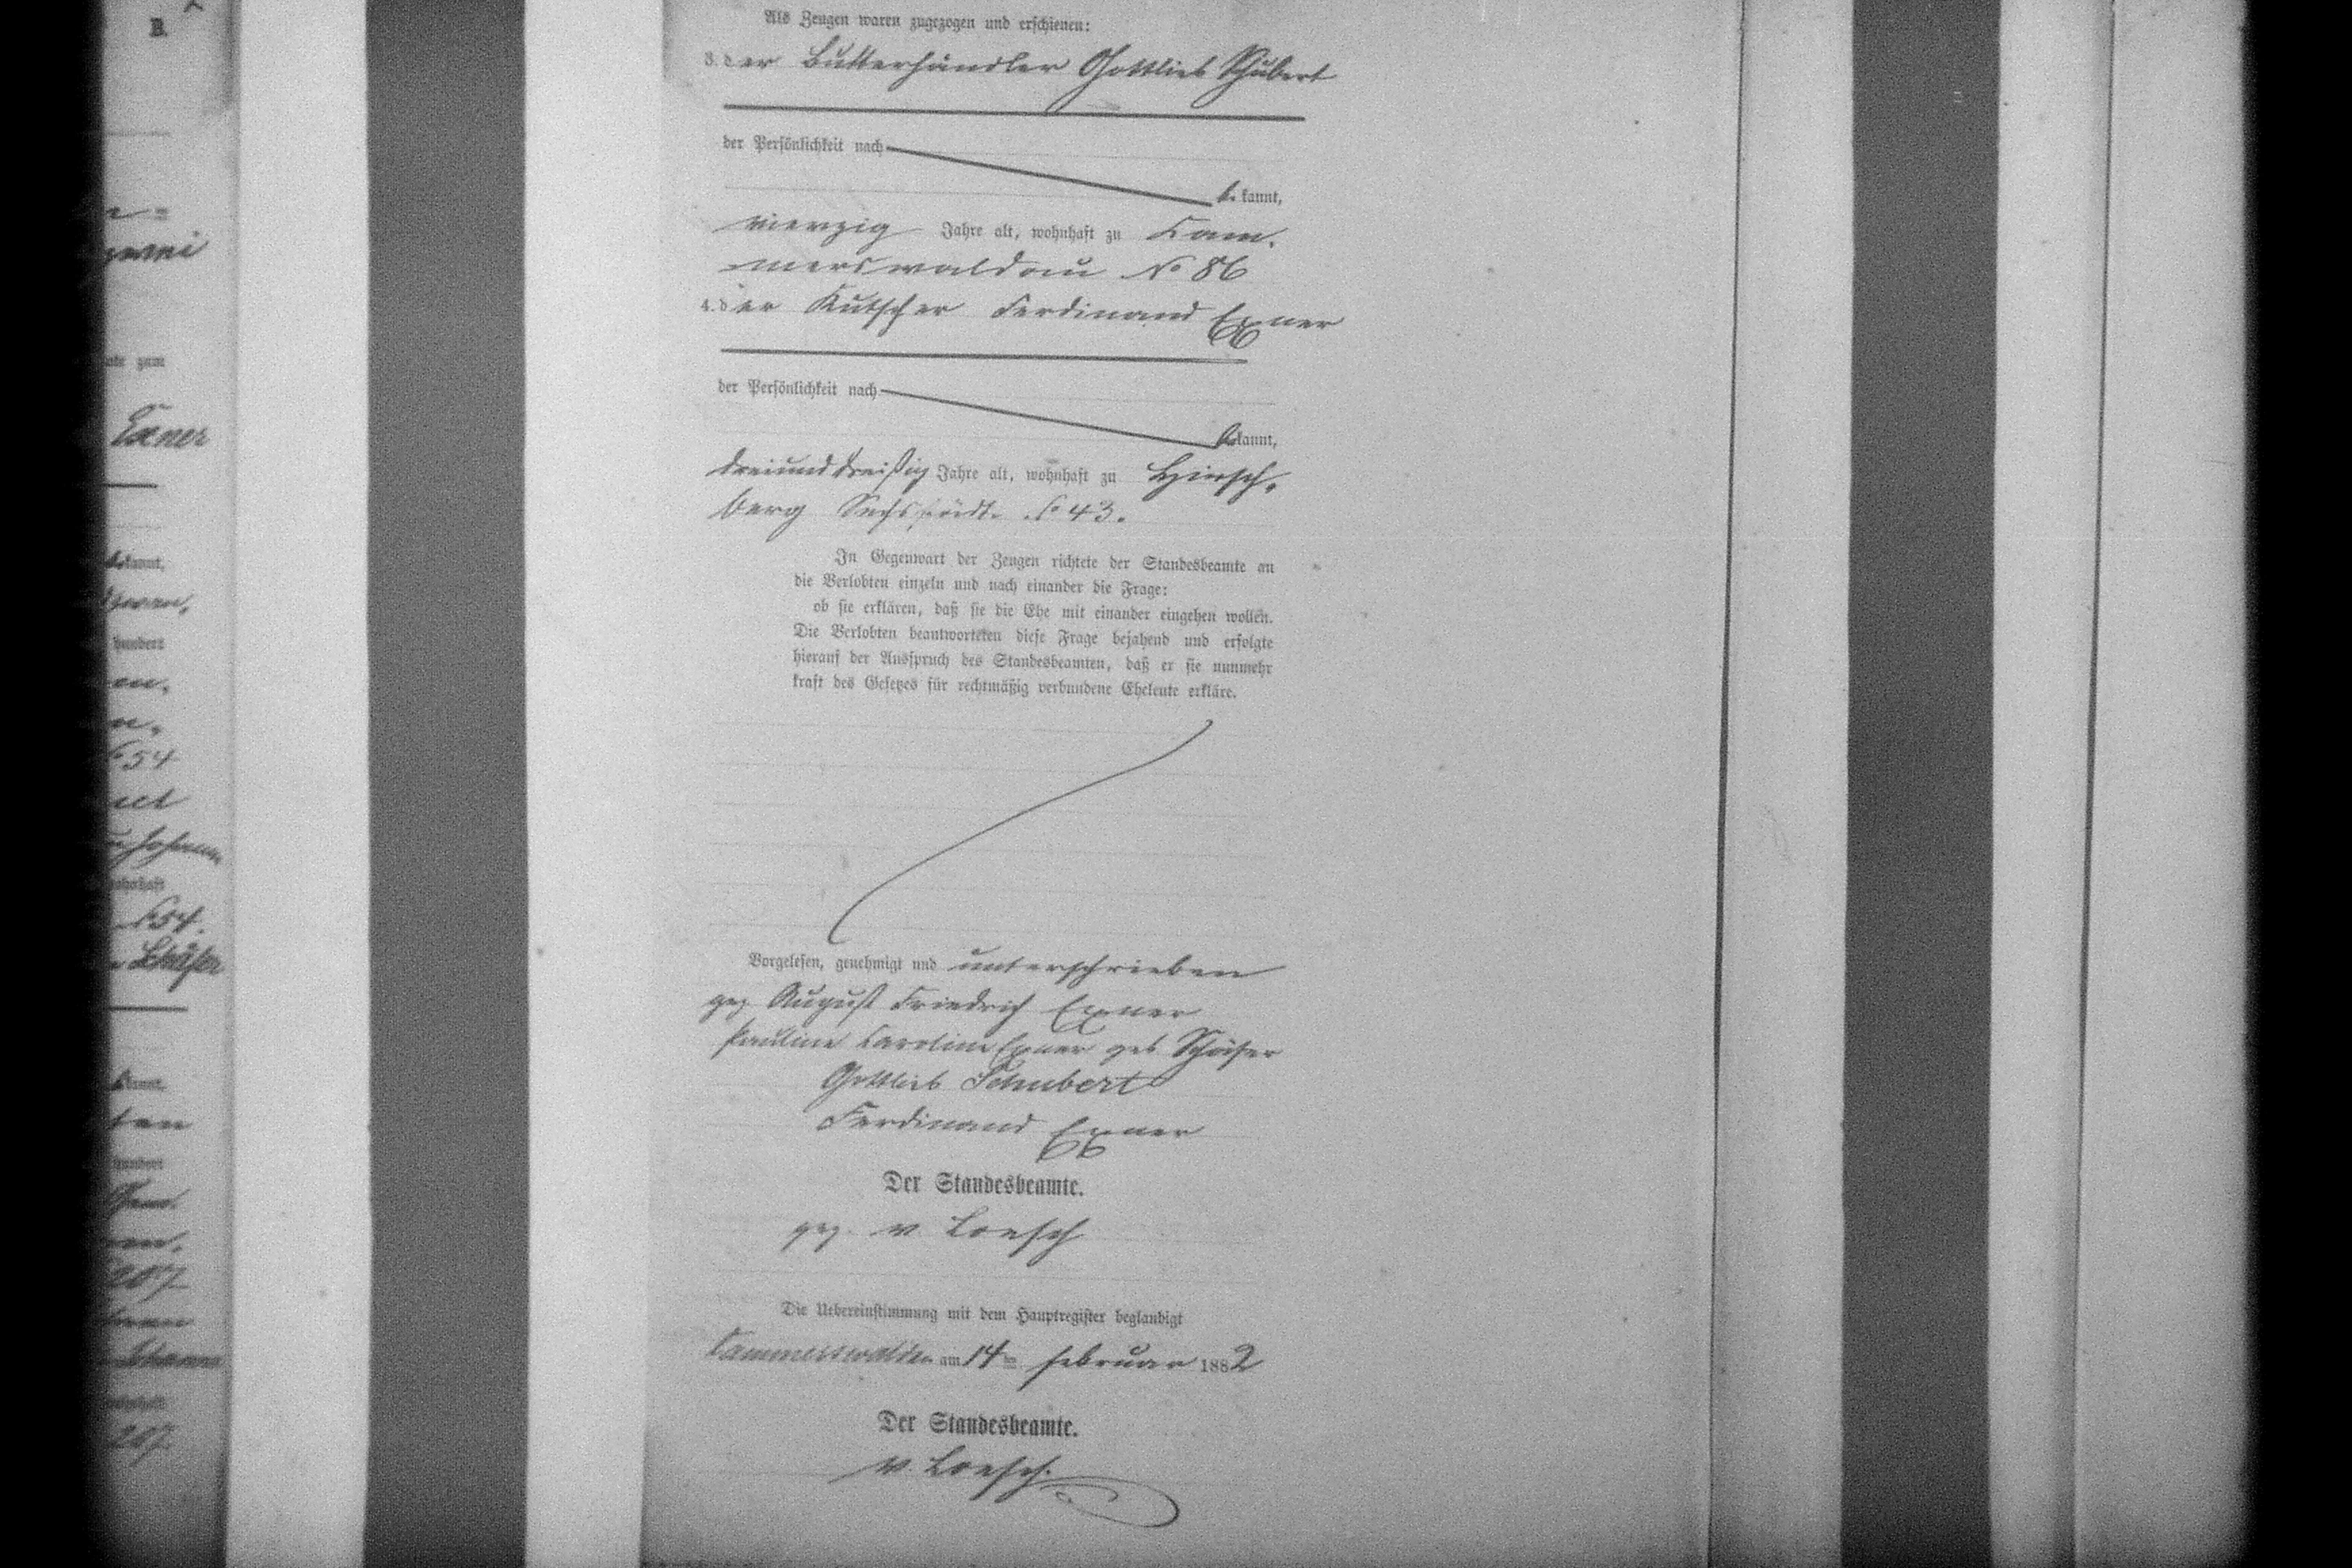 B.
gerni
ate zum
Exner
bekannt,
hundert
No 54
Johann
wohnhaft
No 54.
Schäfer
kannt
hundert
207
Johanne
wohnhaft
207.
Als Zeugen waren zugezogen und erschienen:
3. der Butterhändler Gottlieb Schubert
der Persönlichkeit nach
bekannt,
vierzig Jahre alt, wohnhaft zu Kam-
merswaldau No 86
4. der Kutscher Ferdinand Exner
der Persönlichkeit nach
bekannt,
dreiunddreißig Jahre alt, wohnhaft zu Hirsch-
berg Sechsstädte No 43.
In Gegenwart der Zeugen richtete der Standesbeamte an
die Verlobten einzeln und nach einander die Frage:
ob sie erklären, daß sie die Ehe mit einander eingehen wollen.
Die Verlobten beantworteten diese Frage bejahend und erfolgte
hierauf der Ausspruch des Standesbeamten, daß er sie nunmehr
kraft des Gesetzes für rechtmäßig verbundene Eheleute erkläre.
Vorgelesen, genehmigt und unterschrieben
gez August Friedrich Exner
Pauline Caroline Exner geb Schäfer
Gottlieb Schubert
Ferdinand Exner
Der Standesbeamte.
gez. v Loesch
Die Uebereinstimmung mit dem Hauptregister beglaubigt
Cammerswaldau am 14ten Februar 1882
Der Standesbeamte.
v. Loesch.